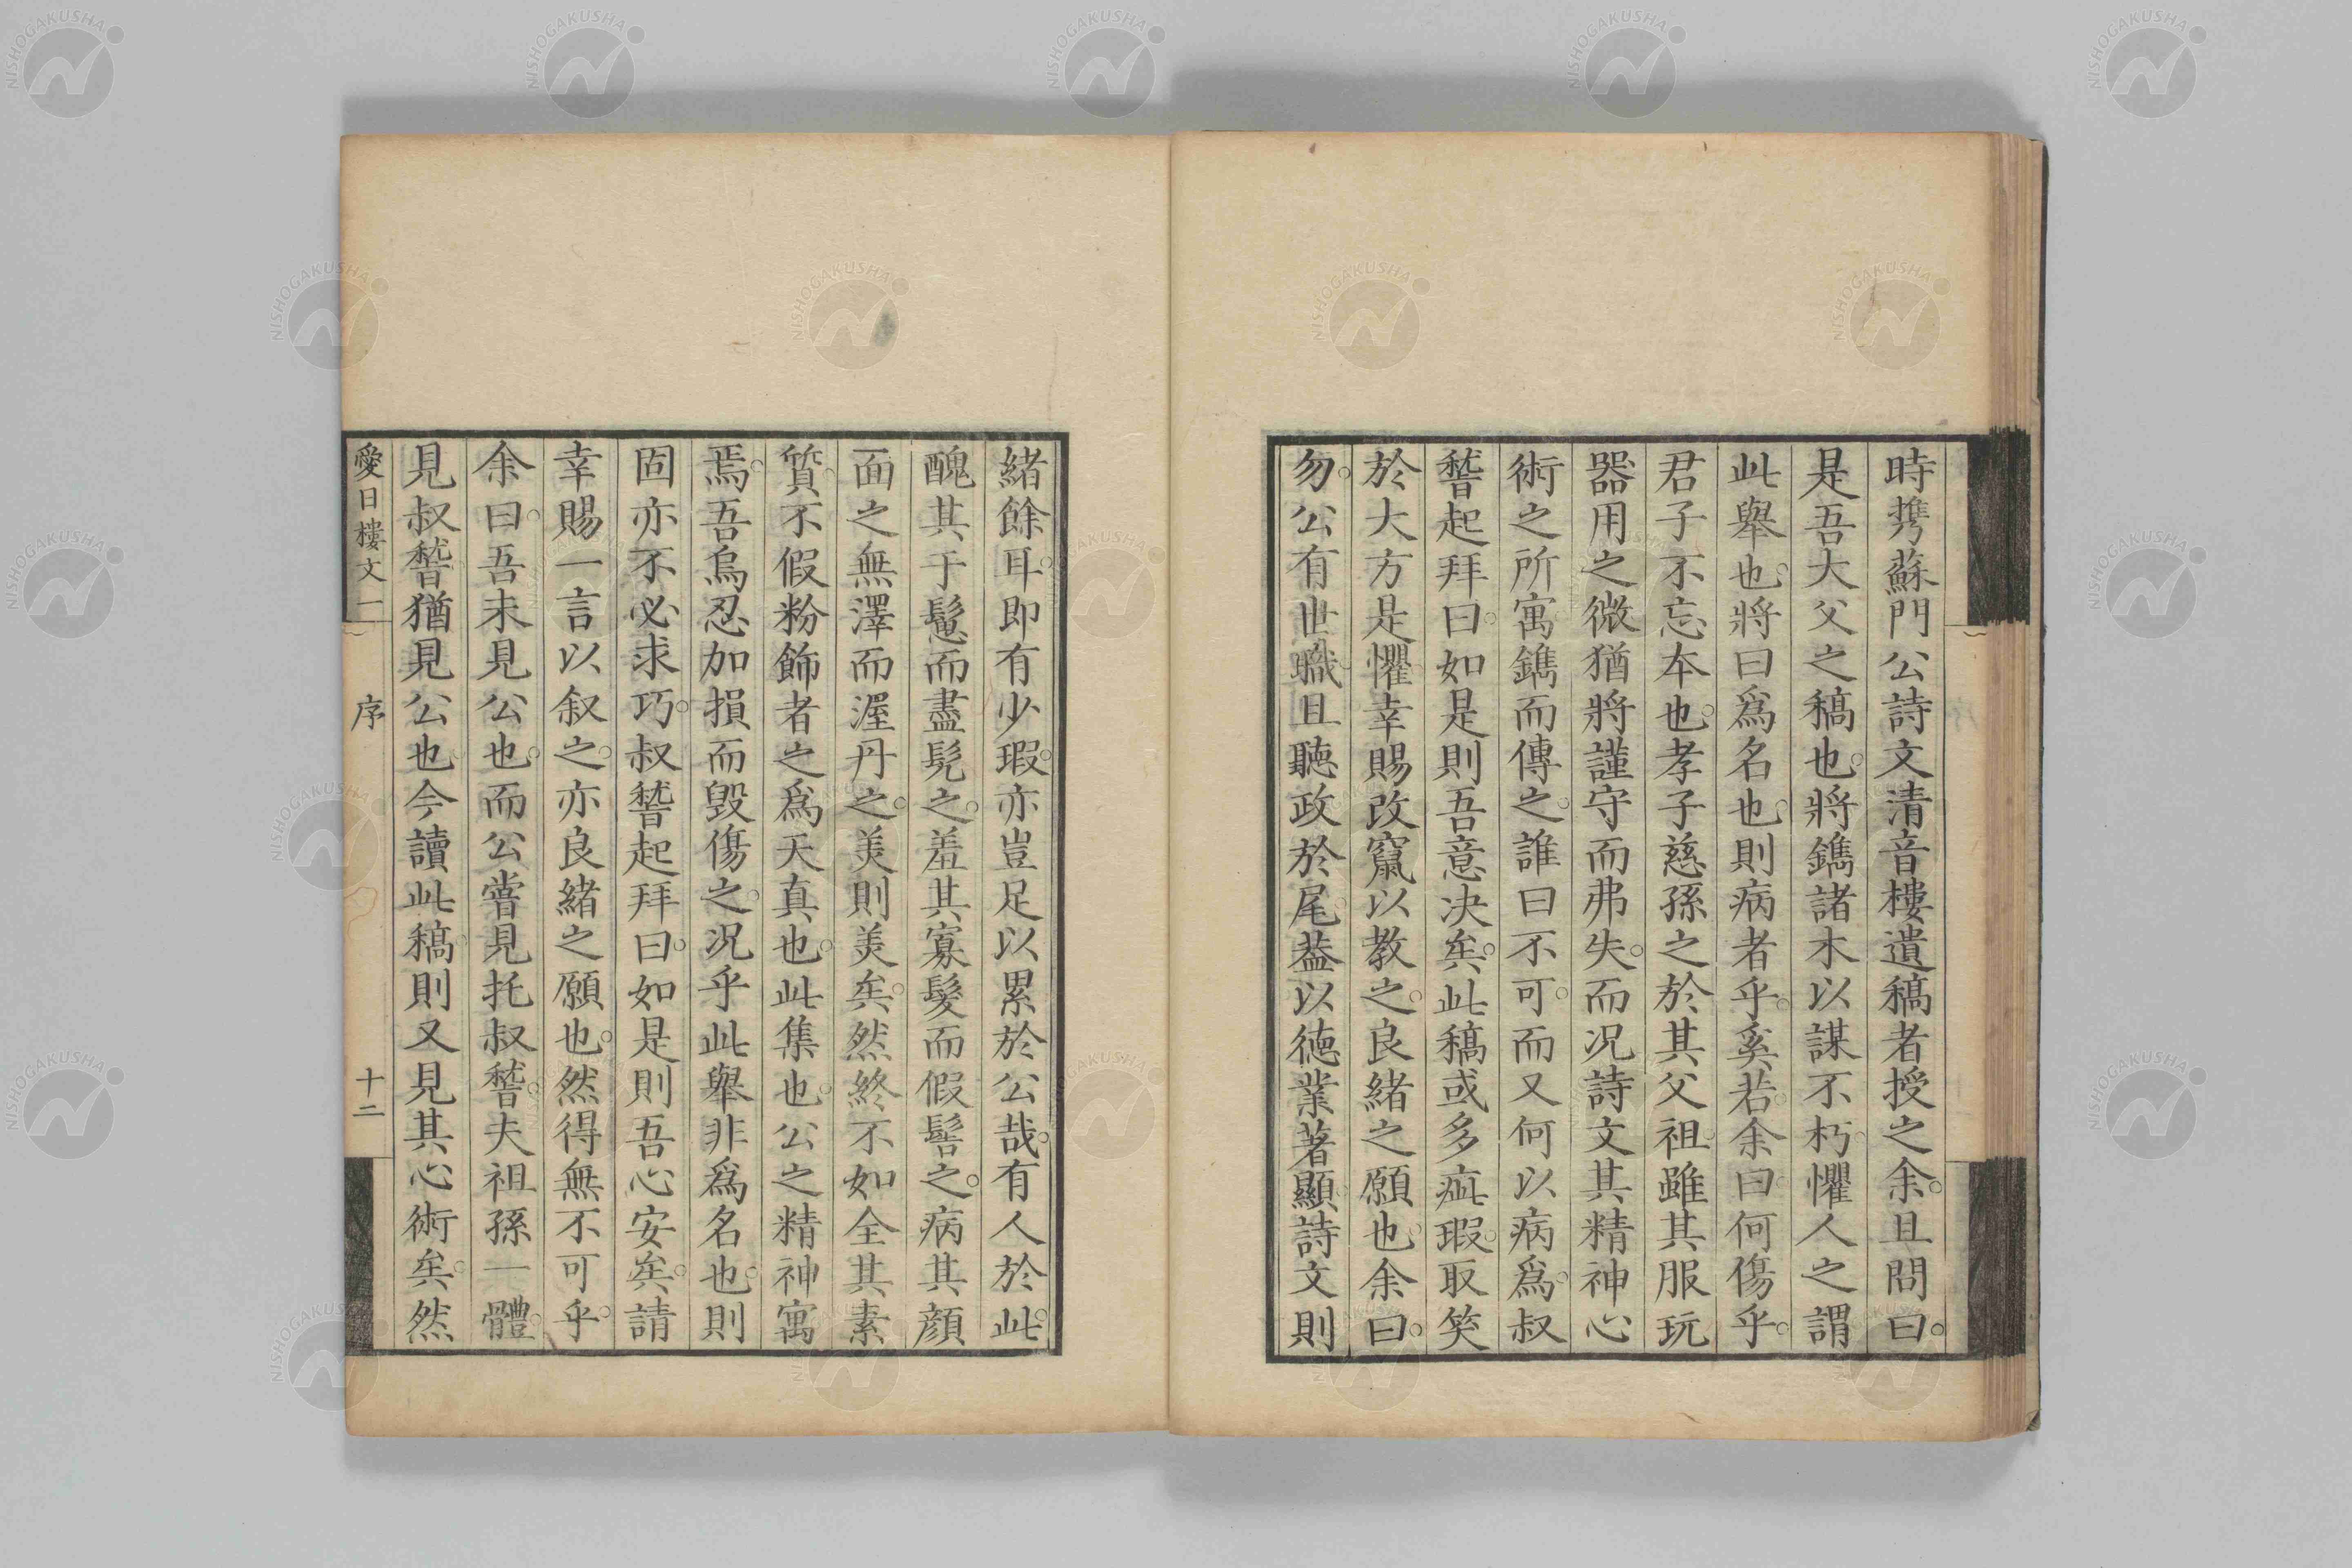 時携蘇門公詩文清音樓遺稿者授之余。且問曰。
是吾大父之稿也。將鐫諸木以謀不朽。懼人之謂
此舉也。將曰爲名也。則病者乎。奚若。余曰。何傷乎。
君子不忘本也。孝子慈孫之於其父祖。雖其服玩
器用之微。猶將謹守而弗失。而况詩文其精神心
術之所寓。鐫而傳之。誰曰不可。而又何以病爲。叔
嵆起拜曰。如是則吾意决矣。此稿或多疵瑕。取笑
於大方是懼。幸賜改竄以教之。良緒之願也。余曰。
勿。公有世職。且聽政於尾。葢以德業著顯。詩文則
緒餘耳。即有少瑕。亦豈足以累於公哉。有人於此。
醜其于鬈而盡髡之。羞其寡髮而假髢之。病其顏
面之無澤而渥丹之。美則美矣。然終不如全其素
質。不假粉飾者之爲天真也。此集也。公之精神寓
焉。吾烏忍加損而毀傷之。况乎此舉非爲名也。則
固亦不必求巧。叔嵆起拜曰。如是則吾心安矣。請
幸賜一言以叙之。亦良緒之願也。然得無不可乎。
余曰。吾未見公也。而公嘗見托叔嵆。夫祖孫一體。
見叔嵆猶見公也。今讀此稿。則又見其心術矣。然
愛日樓文 二 序 十二
NISHOGAKUSHA